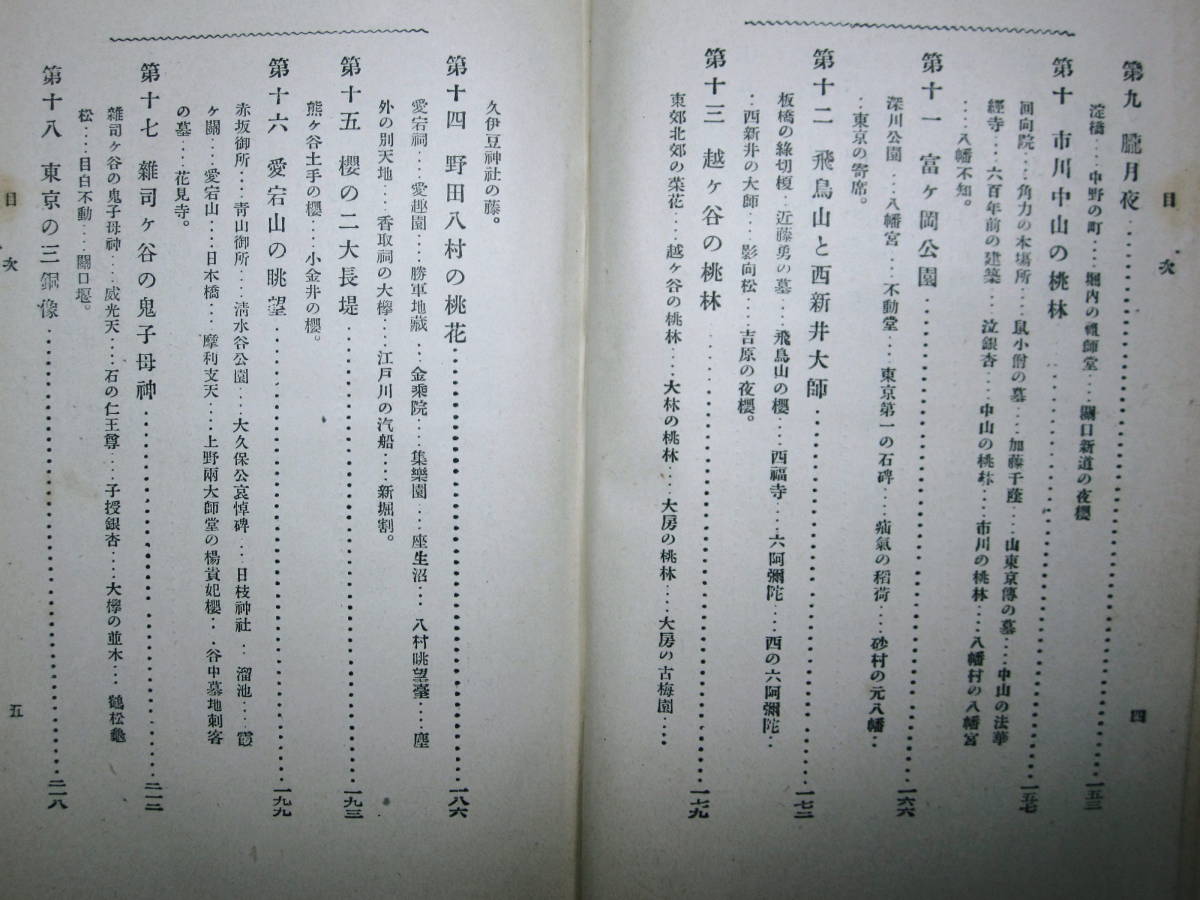 目次
四
第九 朧月夜……一五三
淀橋‥‥中野の町‥‥堀内の祖師堂‥‥關口新道の夜櫻
第十 市川中山の桃林……一五七
回向院‥‥角力の本場所‥‥鼠小僧の墓‥‥加藤千蔭‥‥山東京傳の墓‥‥中山の法華
經寺‥‥六百年前の建築‥‥泣銀杏‥‥中山の桃林‥‥市川の桃林‥‥八幡村の八幡宮
‥‥八幡不知。
第十一 富ヶ岡公園……一六六
深川公園‥‥八幡宮‥‥不動堂‥‥東京第一の石碑‥‥疝氣の稻荷‥‥砂村の元八幡‥
‥東京の寄席。
第十二 飛鳥山と西新井大師……一七二
板橋の緣切榎‥近藤勇の墓‥‥飛鳥山の櫻‥‥西福寺‥‥六阿彌陀‥‥西の六阿彌陀‥
‥西新井の大師‥‥影向松‥‥吉原の夜櫻。
第十三 越ヶ谷の桃林……一七九
東郊北郊の菜花‥‥越ヶ谷の桃林‥‥大林の桃林‥‥大房の桃林‥‥大房の古梅園‥‥
久伊豆神社の藤。
第十四 野田八村の桃花……一八六
愛宕祠‥‥愛趣園‥‥勝軍地藏‥‥金乘院‥‥集樂園‥‥座生沼‥‥八村眺望臺‥‥塵
外の別天地‥‥香取祠の大欅‥‥江戸川の汽船‥‥新堀割。
第十五 櫻の二大長堤……一九三
熊ヶ谷土手の櫻‥‥小金井の櫻。
第十六 愛宕山の眺望……一九九
赤坂御所‥‥靑山御所‥‥淸水谷公園‥‥大久保公哀悼碑‥‥日枝神社‥‥溜池‥‥霞
ヶ關‥‥愛宕山‥‥日本橋‥‥摩利支天‥‥上野兩大師堂の楊貴妃櫻‥‥谷中墓地刺客
の墓‥‥花見寺。
第十七 雜司ヶ谷の鬼子母神……二一二
雜司ヶ谷の鬼子母神‥‥威光天‥‥石の仁王尊‥‥子授銀杏‥‥大欅の並木‥‥鶴松龜
松‥‥目白不動‥‥關口堰。
第十八 東京の三銅像……二一八
目次
五